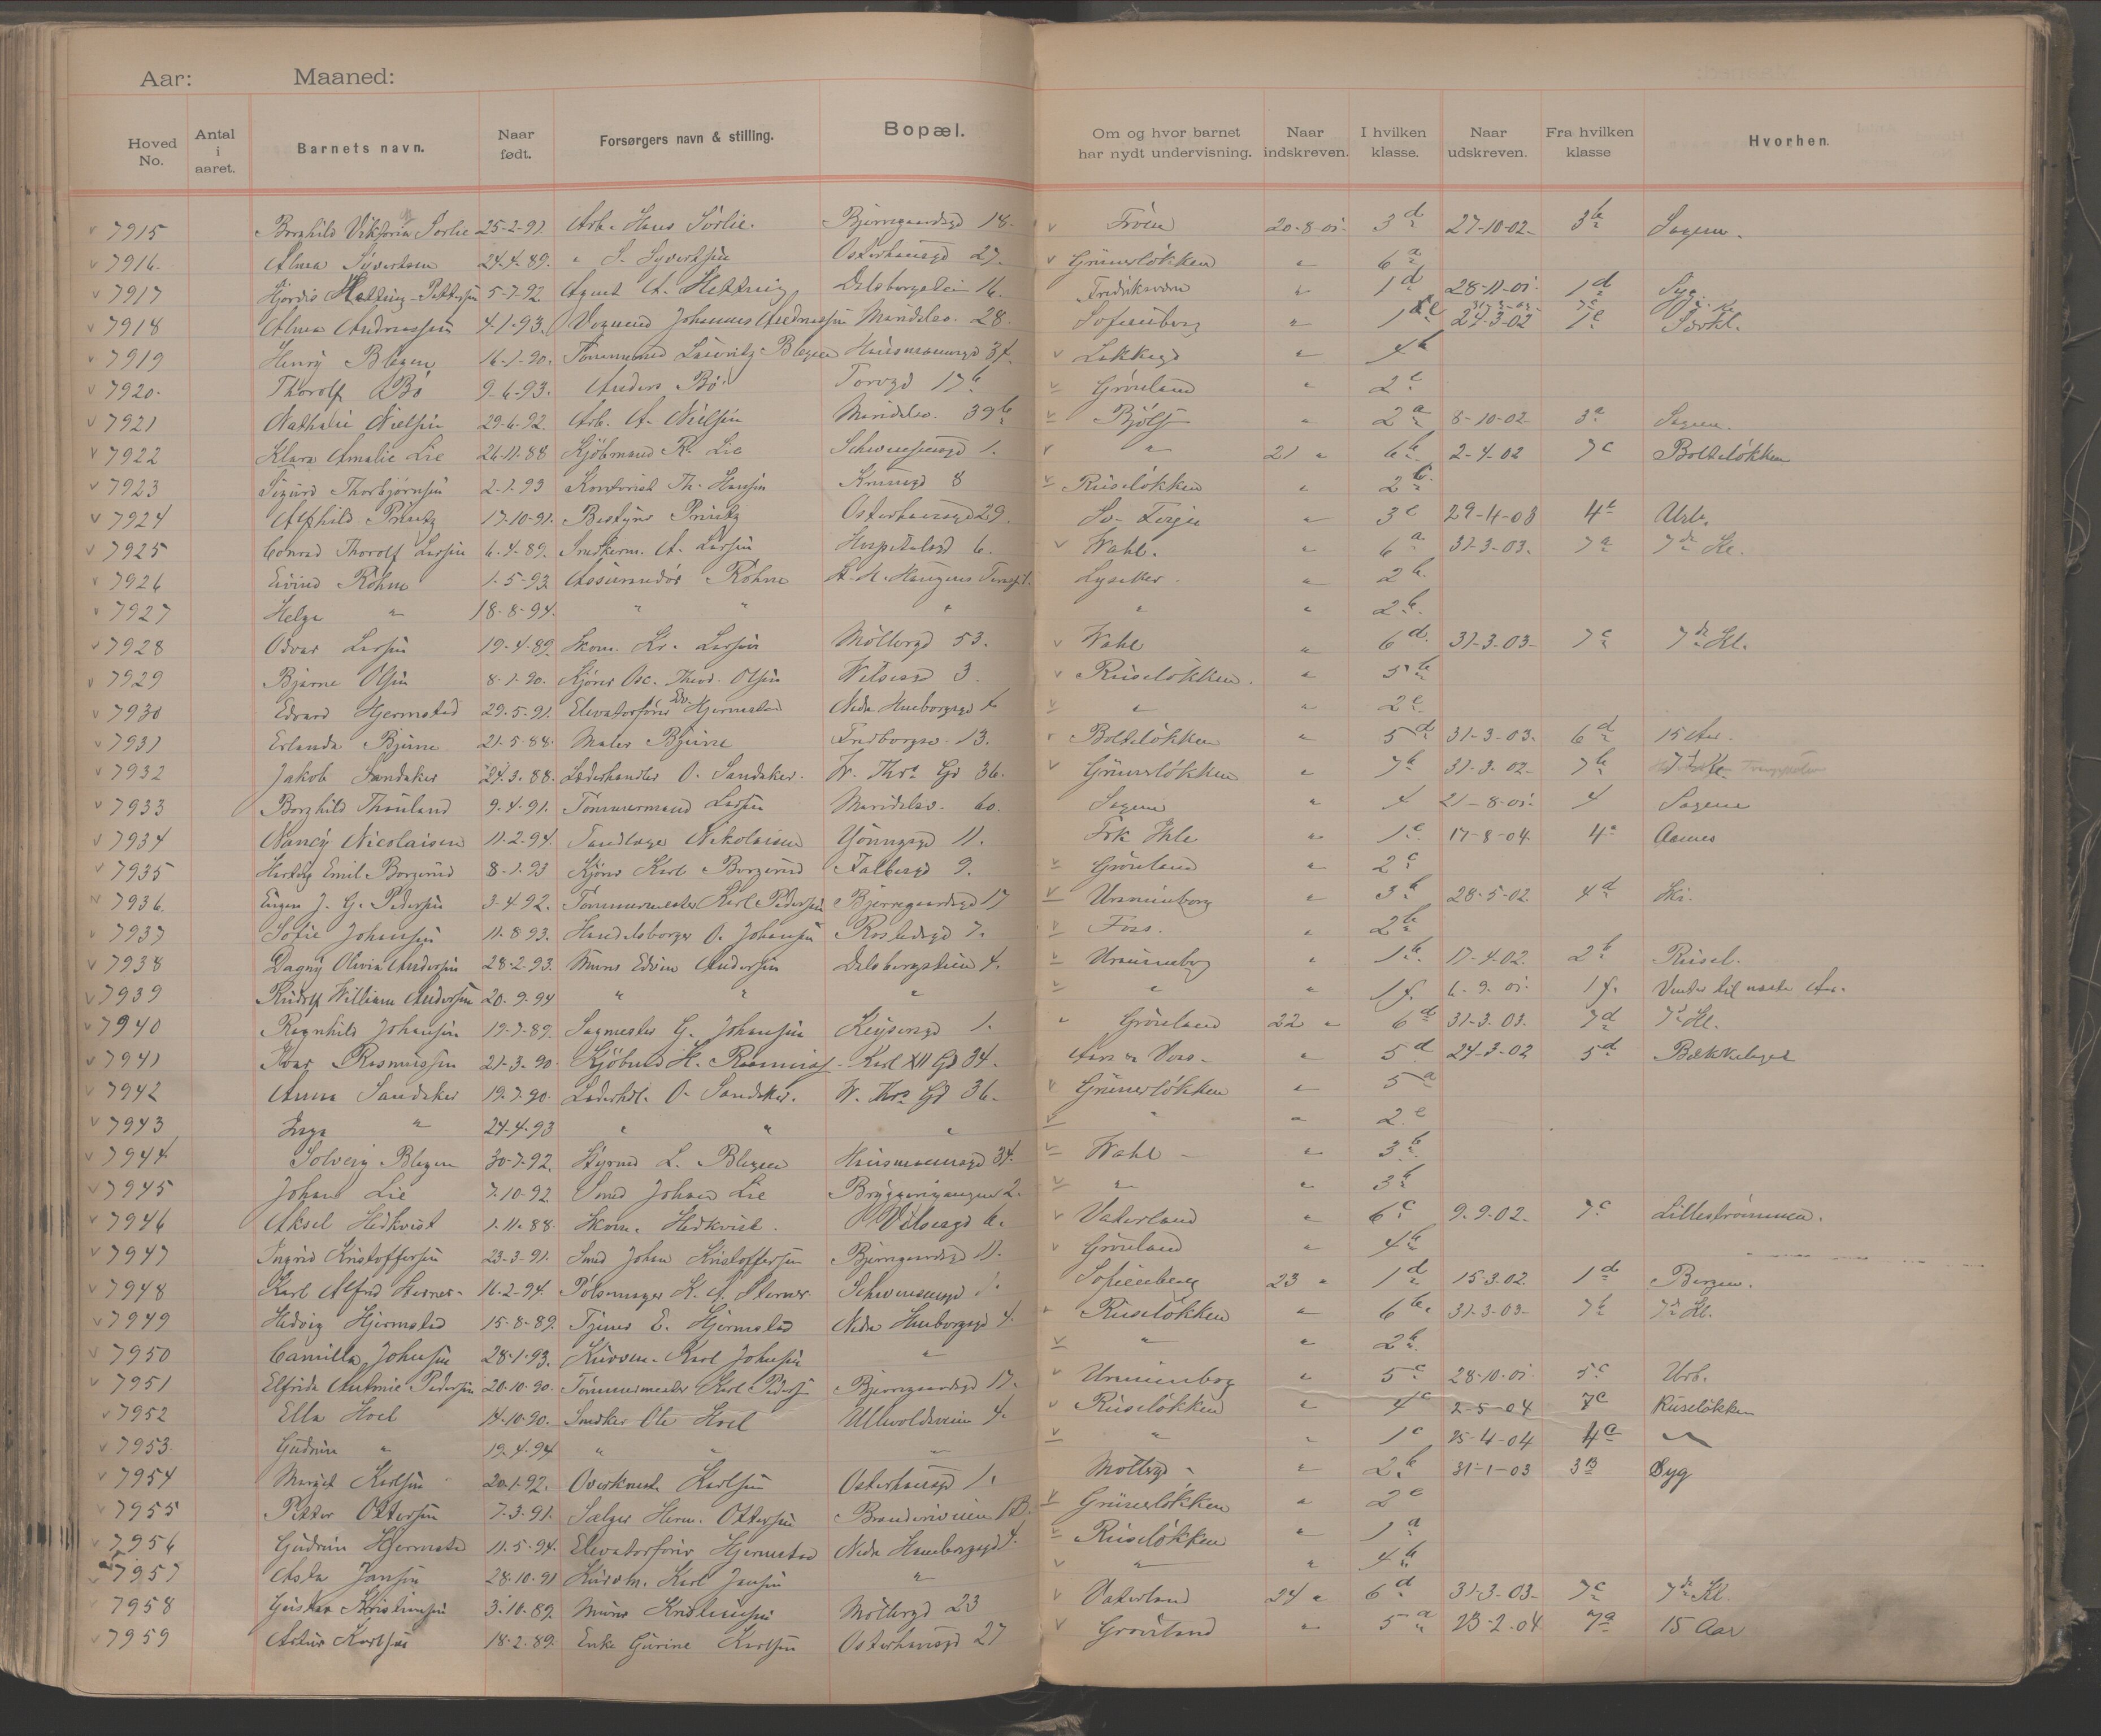 Aar: Maaned:
Hoved No. Antal i aaret. Barnets navn. Naar født. Forsørgers navn & stilling. Bopæl. Om og hvor barnet har nydt undervisning. Naar indskreven. I hvilken klasse. Naar udskreven. Fra hvilken klasse Hvorhen.
7915 Borghild Viktoria Sørlie 25-2-91 Arb. Hans Sørlie. Bjerregaardsgd 18. Frøen 20-8-01. 3d 27-10-02. 3b Sagene.
7916. Alma Syvertsen 24-4-89. " S. Syvertsen Osterhausgd 27. Grünerløkken " 6a
7917 Hjordis Hettwig-Pettersen 5-7-92 Agent A. Hettwig Dalsbergstien 16. Fredriksværn " 1d 28-11-01. 1d Syg
7918 Alma Andreassen 4-1-93. Vognmand Johannes Andreassen Maridalsv. 28. Sofienberg " 1e 24-3-02 1e
7919 Henry Blegen 16-1-90. Tømmermand Lauritz Blegen Hausmannsgd 34. Lakkegd " 4b
7920. Thorolf Bø 9-6-93. Anders Bø Torvgd 17b Grønland " 2c
7921 Nathalie Nielsen 29-6-92. Arb. A. Nielsen Maridalsv. 39b Bjølsen " 2a 8-10-02 3a Sagene.
7922 Klara Amalie Lie 26-11-88 Kjøbmand R. Lie Schwensensgd 1. " 21 " 6b 2-4-02 7c Bolteløkken
7923 Sigurd Thorbjørnsen 2-1-93 Kontorist Th. Hansen Krumgd 8 Ruseløkken " 2b.
7924 Alfhild Prinetz 17-10-91. Bestyrer Prinetz Osterhausgd 29. " 3c 29-4-03 4c Urb.
7925 Conrad Thorolf Larsen 6-4-89. Snedkerm. A. Larsen Hospitalsgd 6. Wahl. " 6a 31-3-03. 7a 7de Kl.
7926 Eivind Røhne 1-5-93 Assurandør Røhne Lysaker " 2b.
7927 Helge " 18-8-94. " " " " " 2b.
7928 Odvar Larsen 19-4-89. Skom. Kr. Larsen Møllergd 53. Wahl " 6d. 31-3-03. 7c 7de Kl.
7929 Bjarne Olsen 8-1-90. Kjører Osc. Theod. Olsen Wilsesgd 3. Ruseløkken. " 5b
7930 Edvard Hjermstad 29-5-91. Elevatorfører Edv. Hjermstad Nedre Hauborgsgd 4 " " 2c
7931 Erlanda Bjurre 21-5-88. Maler Bjurre Fredborgsv. 13. Bolteløkken " 5d 31-3-03. 6d 15 Aar.
7932 Jakob Sandaker 24-3-88. Læderhandler O. Sandaker. W. Thrs Gd 36. Grünerløkken " 7b 31-3-02. 7b 7de Kl
7933 Borghild Thauland 9-4-91. Tømmermand Larsen Maridalsv. 60. Sagene " 4 21-8-01. 4 Sagene
7934 Nancy Nicolaisen 11-2-94. Tandlæge Nikolaisen Youngsgd 11. Frk Ihle " 1c 17-8-04. 4c Aames
7935 Hartvig Emil Borgerud 8-1-93 Kjører Karl Borgerud Falbesgd 9. Grønland " 2c
7936. Eugen J. G. Pedersen 3-4-92. Tømmermester Karl Pedersen Bjerregaardsgd 17 Uranienborg " 3b 28-5-02. 4d Ski.
7937 Sofie Johansen 11-8-93. Handelsborger O. Johansen Rostedsgd 7. Foss. " 2b
7938 Dagny Olivia Andersen 28-2-93. Murer Edvin Andersen Dalsbergstien 4. Uranienborg " 1b. 17-4-02. 2b Rusel.
7939 Rudolf William Andersen 20-9-94 " " " " " 1f. 6-9-01. 1f. Venter til næste Aar.
7940 Ragnhild Johansen 19-7-89. Sagmester G. Johansen Keysersgd 1. Grønland 22 " 6d 31-3-03. 7d 7de Kl.
7941 Ivar Rasmussen 21-3-90. Kjøbmd H. Rasmuss Karl XII Gd 34. " 5d 24-3-02 5d Bækkelaget
7942 Anna Sandaker 19-7-90. Læderhdl. O. Sandaker. W. Thrs Gd 36. Grünerløkken " 5a
7943 Inga " 24-4-93 " " " " " 2e
7944 Solveig Blegen 30-7-92. Styrmd L. Blegen Hausmannsgd 34. Wahl " 3b
7945 Johan Lie 7-10-92 Smed Johan Lie Bryggerigangen 2. " " 3b
7946 Aksel Hedkvist 1-11-88 Skom. Hedkvist. Vilsesgd 6. Vaterland " 6c 9-9-02. 7c Lillestrømmen.
7947 Ingrid Kristoffersen 23-3-91. Smed Johan Kristoffersen Bjerregaardsgd 11. Grønland " 4b
7948 Karl Alfred Sterner 16-2-94. Pølsemager K. A. Sterner. Schwensensgd 1. Sofienberg 23 " 1d 15-3-02. 1d Bergen.
7949 Hedvig Hjermstad 15-8-89. Tjener E. Hjermstad Nedre Hauborgsgd 4. Ruseløkken " 6b. 31-3-03. 7b 7de Kl.
7950 Camilla Johnsen 28-1-93. Karl Johnsen " " " 2b.
7951 Elfrida Antonie Pedersen 20-10-90. Tømmermester Karl Peders Bjerregaardsgd 17. Uranienborg " 5c 28-10-01. 5c Urb.
7952 Ella Hoel 14-10-90. Snedker Ole Hoel Ullevoldsveien 4. Ruseløkken " 4c 2-5-04 7c Ruseløkken
7953. Gudrun " 19-4-94 " " " " " 1c 25-4-04 4c "
7954 Margit Karlsen 20-1-92. Overknekt Karlsen Osterhausgd 1. Møllergd " 2b 31-1-03 3B Syg
7955 Petter Ottersen 7-3-91. Sælger Herm. Ottersen 1B. Grünerløkken " 2e
7956 Gudrun Hjermstad 11-5-94. Elevatorfører Hjermstad Nedre Hauborgsgd 4. Ruseløkken " 1a
7957 Asta Jansen 28-10-91 Karl Jansen " " " 4b
7958 Gustav Kristiansen 3-10-89. Murer Kristiansen Møllergd 23 Vaterland 24 " 6d 31-3-03. 7c 7de Kl.
7959 Artur Karlsen 18-2-89. Enke Gurine Karlsen Osterhausgd 27 Grønland " 5a 23-2-04 7a 15 Aar